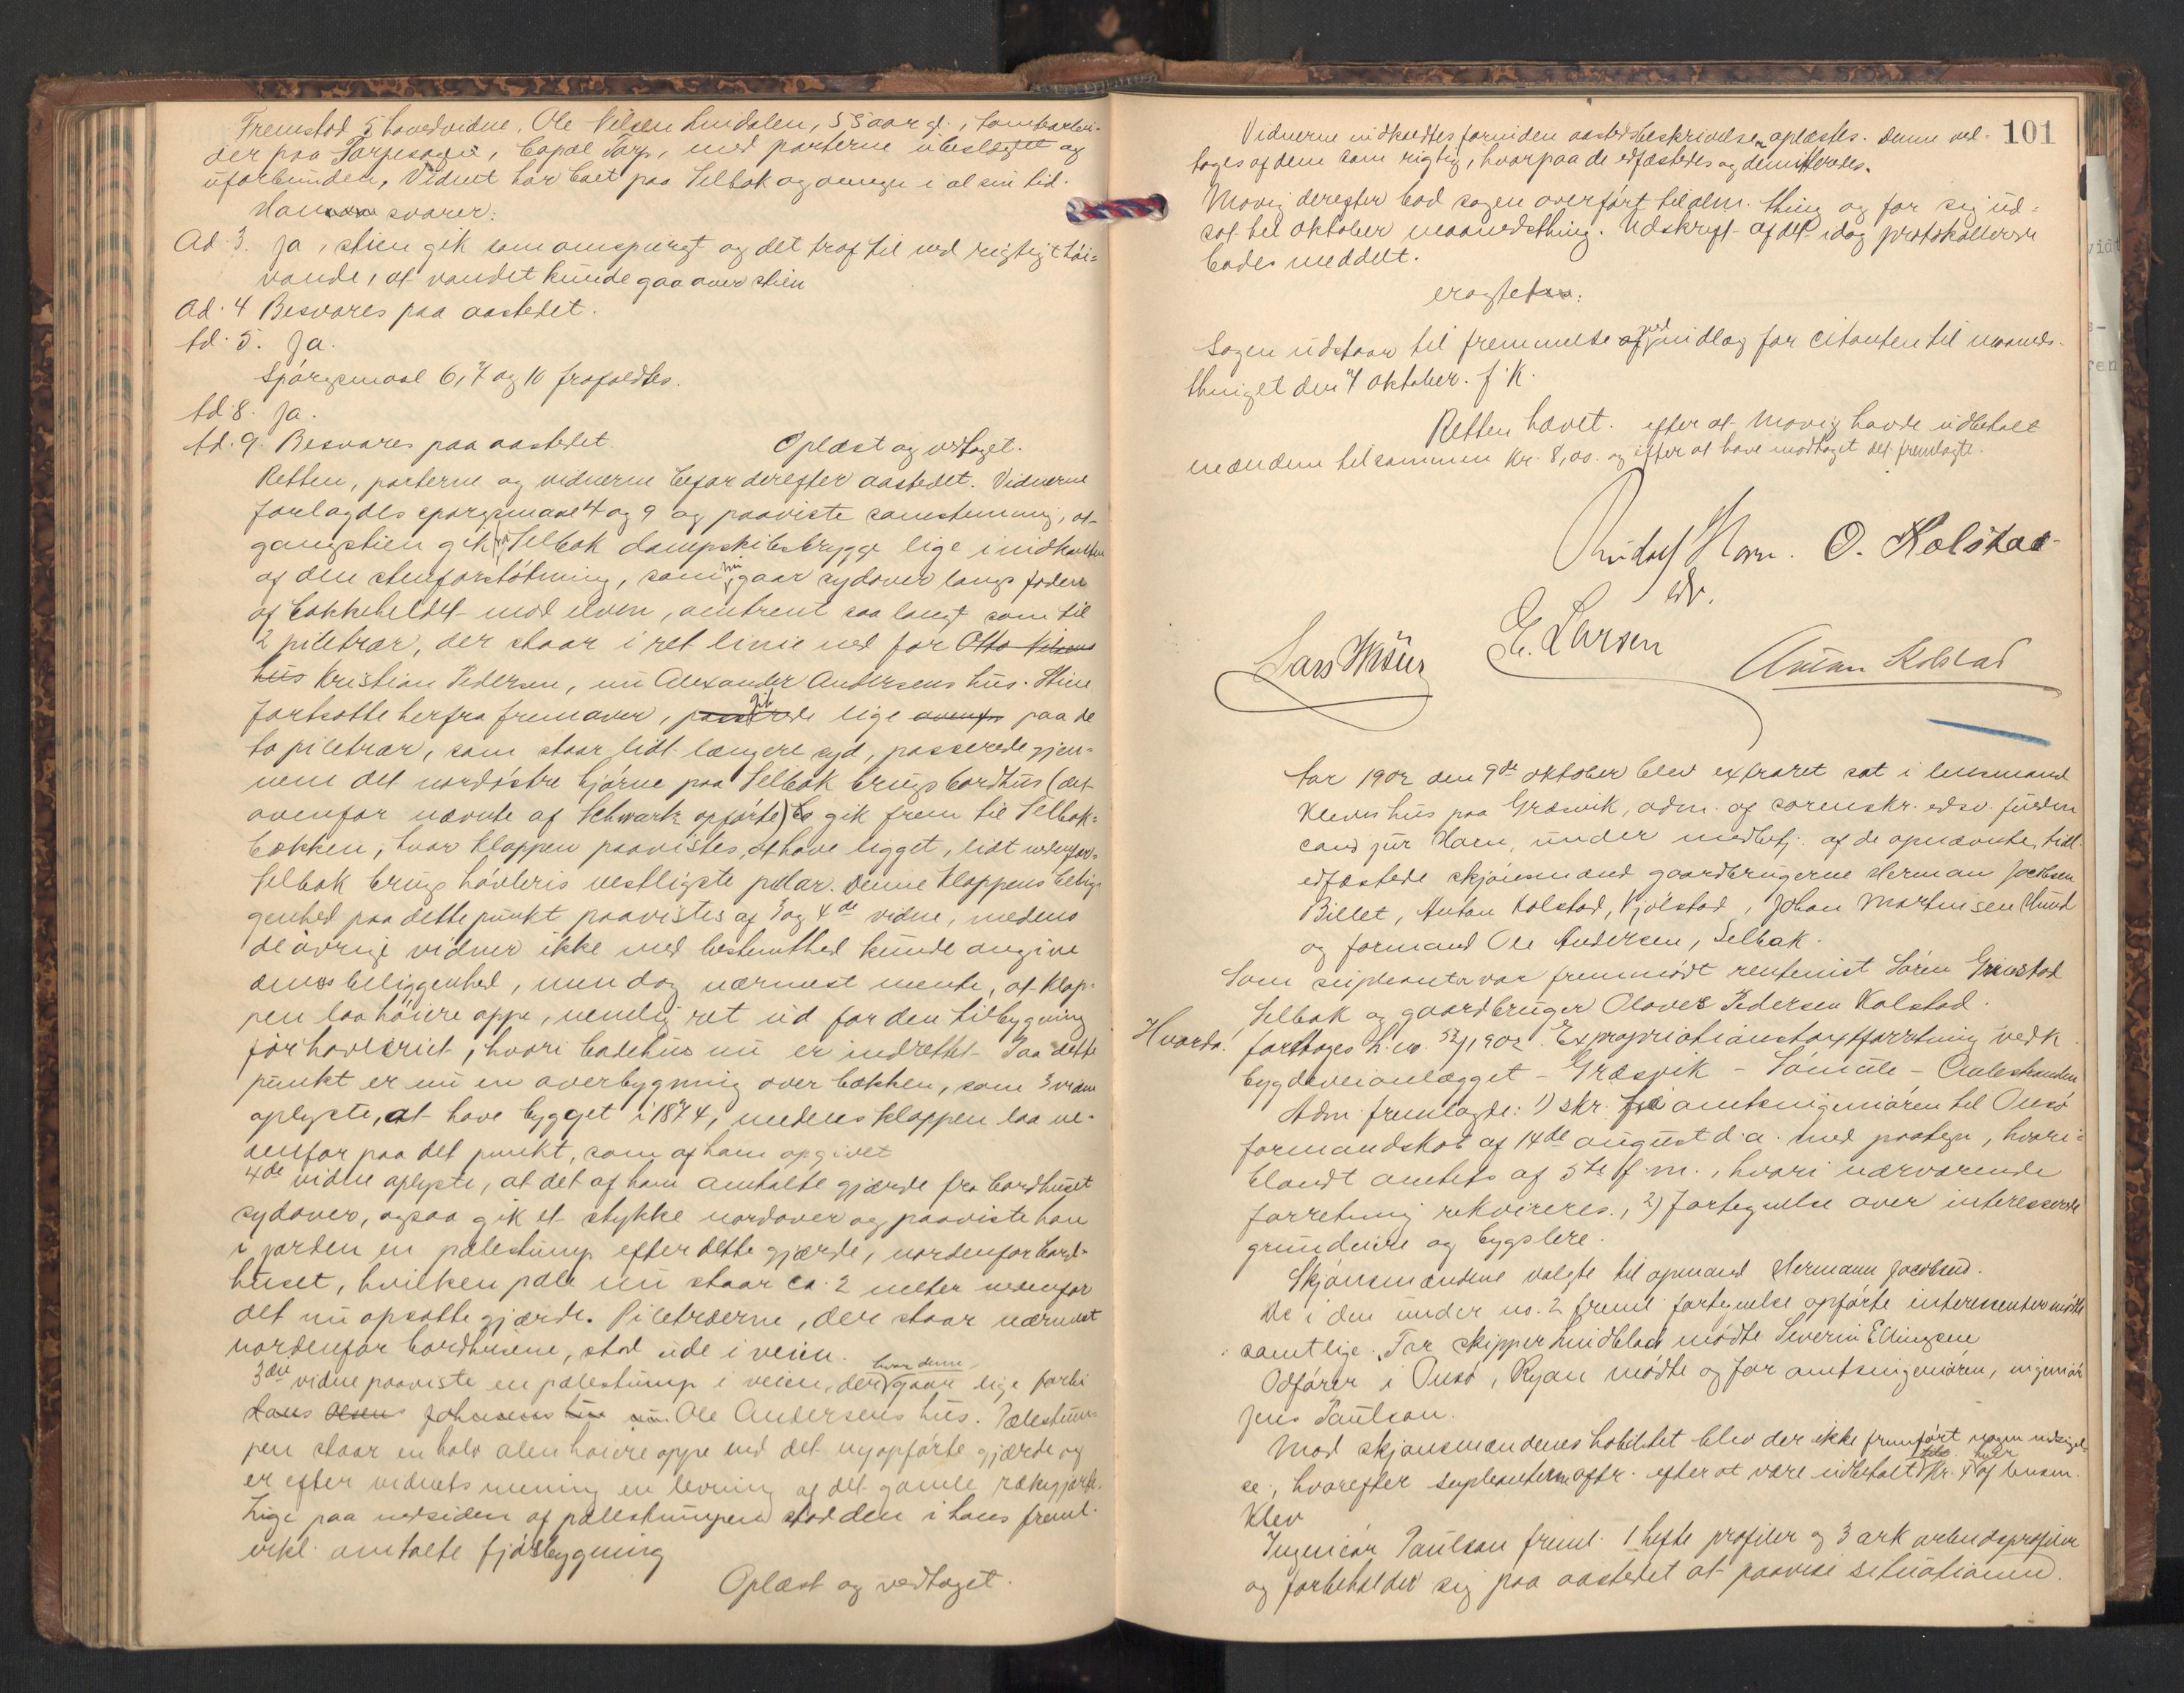 Fremstod 5 hovedvidne, Ole Nilsen Lundalen, 55 aar gl., tomtearbei-
der paa Torpesagen, Bopæl Torp, med parterne ubeslægtet og
uforbunden, Vidnet har boet paa Selbak og omegn i al sin tid.
Han svarer:
Ad 3. Ja, stien gik som omspurgt og det traf til ved rigtigt høi-
vande, at vandet kunde gaa over stien
Ad. 4 Besvares paa aastedet.
Ad. 5. Ja.
Spørgsmaal 6, 7 og 10 frafaldtes.
Ad. 8. Ja.
Ad. 9. Besvares paa aastedet. Oplæst og vedtaget.
Retten, parterne og vidnerne befor derefter aastedet. Vidnerne
forlagdes spørgsmaal 4 og 9 og paaviste samstemmig, at
gangstien gik fra Selbak dampskibsbrygge lige i midkanten
af den stenforstøtning, som nu gaar sydover langs foden
af bakkeheldet mod elven, omtrent saa langt som til
2 piletrær, der staar i ret linie ned for Otto Nilsens
hus Kristian Pedersen, nu Alexander Andersens hus. Stien
fortsatte herfra fremover, passerede gik lige ovenfor paa de
to piletrær, som staar lidt længere syd, passerede gjen-
nem det nordøstre hjørne paa Selbak brugs bordhus (det
ovenfor nævnte af Schwartz opførte) og gik frem til Selbak-
bækken, hvor kloppen paavistes, at have ligget, lidt nedenfor
Selbak brugs høvleris vestligste pilar. Denne kloppens belig-
genhed paa dette punkt paavistes af 3 og 4de vidne, medens
de øvrige vidner ikke med bestemthed kunde angive
dens beliggenhed, men dog nærmest mente, at klop-
pen laa høiere oppe, nemlig ret ud for den tilbygning
for høvleriet, hvori badehus nu er indrettet. Paa dette
punkt er nu en overbygning over bækken, som 3 vidne
oplyste, at have bygget i 1874, medens kloppen laa ne-
denfor paa det punkt, som af ham opgivet
4de vidne oplyste, at det af ham omtalte gjærde fra bordhuset
sydover, ogsaa gik et stykke nordover og paaviste han
i jorden en pælestump efter dette gjærde, nordenfor bord-
huset, hvilken pæle nu staar ca. 2 meter nedenfor
det nu opsatte gjærde. Piletræerne, der staar nærmest
nordenfor bordhusene, stod ude i veien.
3die vidne paaviste en pælestump i veien, der hvor denne gaar lige forbi
Hans Olsens Johnsens hus nu Ole Andersens hus. Pælestum-
pen staar en halv alen høiere oppe end det nyopførte gjærde og
er efter vidnets mening en levning af det gamle rækgjærde.
Lige paa nedsiden af pælestumpen stod den i hans freml.
erkl. omtalte fjøsbygning
Oplæst og vedtaget.
101
Vidnerne indkaldtes forinden aastedsbeskrivelsen oplæstes. Denne ved-
toges af dem som rigtig, hvorpaa de edfæstedes og demitteredes.
Movig derefter bad sagen overført til alm. thing og for sig ud-
sat til oktober maanedsthing. Udskrift af det idag protokollerede
bades meddelt.
eragtet:
Sagen udstaar til fremmelse af ved indlæg for Citanten til maaneds-
thinget den 7 oktober. f. K.
Retten hævet. efter at Movig havde udbetalt
mændene tilsammen kr. 8,00. og efter at have modtaget det fremlagte.
Rudolf Horn. O. Kolstad
edv.
Lars Huser G. Larsen Anton Kolstad
Aar 1902 den 9de oktober blev extraret sat i lensmand
Klevs hus paa Græsvik, adm. af sorenskr. edsv. fuldm
cand jur Horn, under medbetj. af de opnævnte, tidl.
edfæstede skjønsmænd gaardbrugerne Herman Jacobsen
Billet, Anton Kolstad, Kjølstad, Johan Martinsen Lund
og formand Ole Andersen, Selbak.
Som supleanter var fremmødt rentenist Søren Grimstad
Selbak og gaardbruger Olaves Pedersen Kolstad.
Hvorda. foretoges L. no. 52/1902. Expropriationstaxtforretning vedk.
bygdeveianlægget - Græsvik - Sømule - Alestranden
Adm. fremlagde: 1) skr. fra amtsingeniøren til Onsø
formandskab af 14de august d. a. med paategn, hvori-
blandt amtets af 5te f. m., hvori nærværende
forretning rekvireres., 2) fortegnelse over interesserede
grundeiere og bygslere.
Skjønsmændene valgte til opmand Hermann Jacobsen.
De i den under no. 2 freml. fortegnelse opførte interessenter mødte
samtlige. For skipper Lindblad mødte Severin Ellingsen
Ordfører i Onsø, Ryan mødte og for amtsingeniøren, ingeniør
Jens Paulson.
Mod skjønsmændenes habilitet blev der ikke fremført nogen indsigel-
se, hvorefter supleanterne aftr. efter at være udbetalt kr. 4 hver af lensm.
Klev
Ingeniør Paulson freml. 1 hefte profiler og 3 ark arbeidsprofiler
og forbeholder sig paa aastedet at paavise situationen.